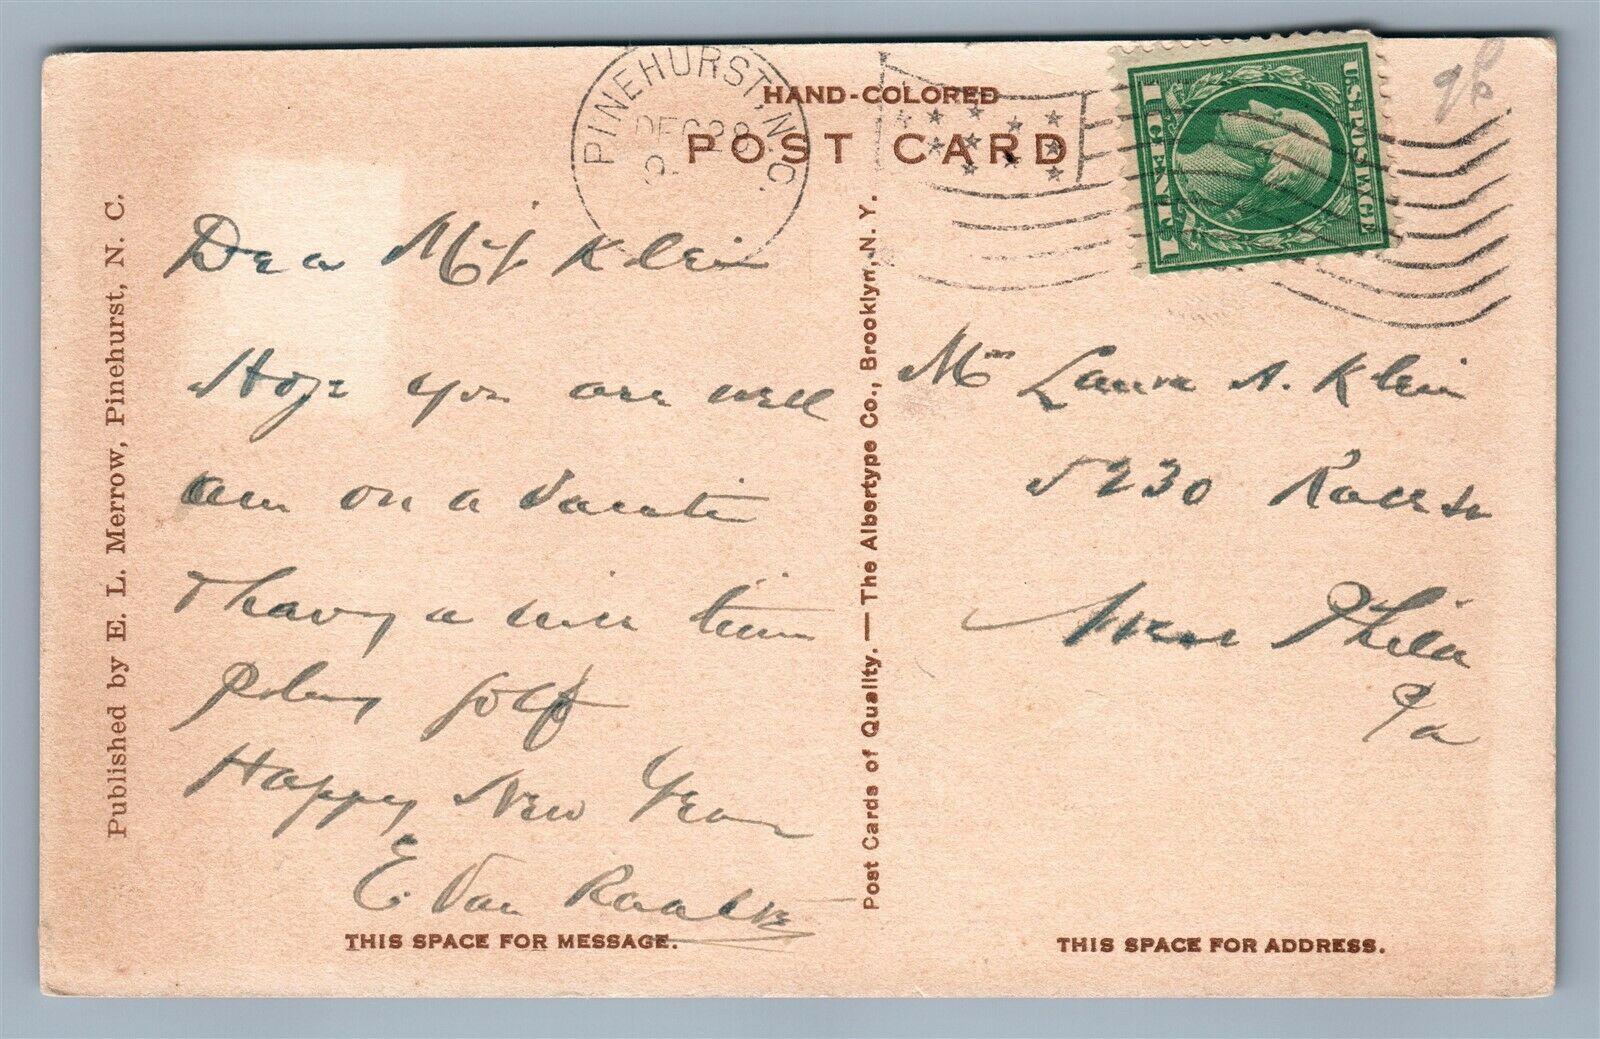 HAND-COLORED
POST CARD
PINEHURST, N.C.
DEC 28
U.S. POSTAGE
1 CENT 1
Published by E. L. Merrow, Pinehurst, N. C.
Dear Mrs Klein
Hope you are well
am on a Vacation
& having a nice time
Playing golf
Happy New Year
E. Van Raalte
THIS SPACE FOR MESSAGE.
Post Cards of Quality. — The Albertype Co., Brooklyn, N. Y.
Mrs Laura A. Klein
5230 Race St
West Phila
Pa
THIS SPACE FOR ADDRESS.